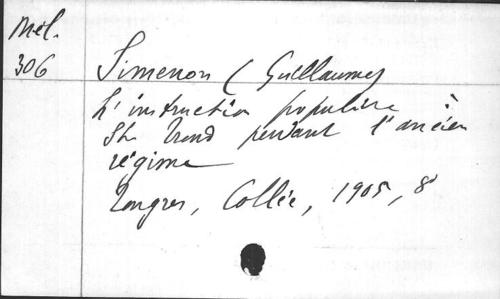 Mél.
306
Simenon (Guillaume)
L'instruction populaire à
St Trond pendant l'ancien
régime
Tongres, Collée, 1905, 8°